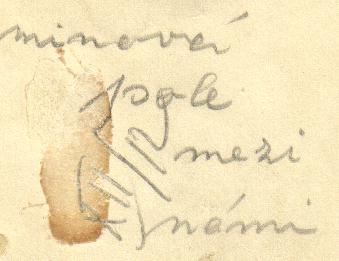 minová
pole
mezi
námi